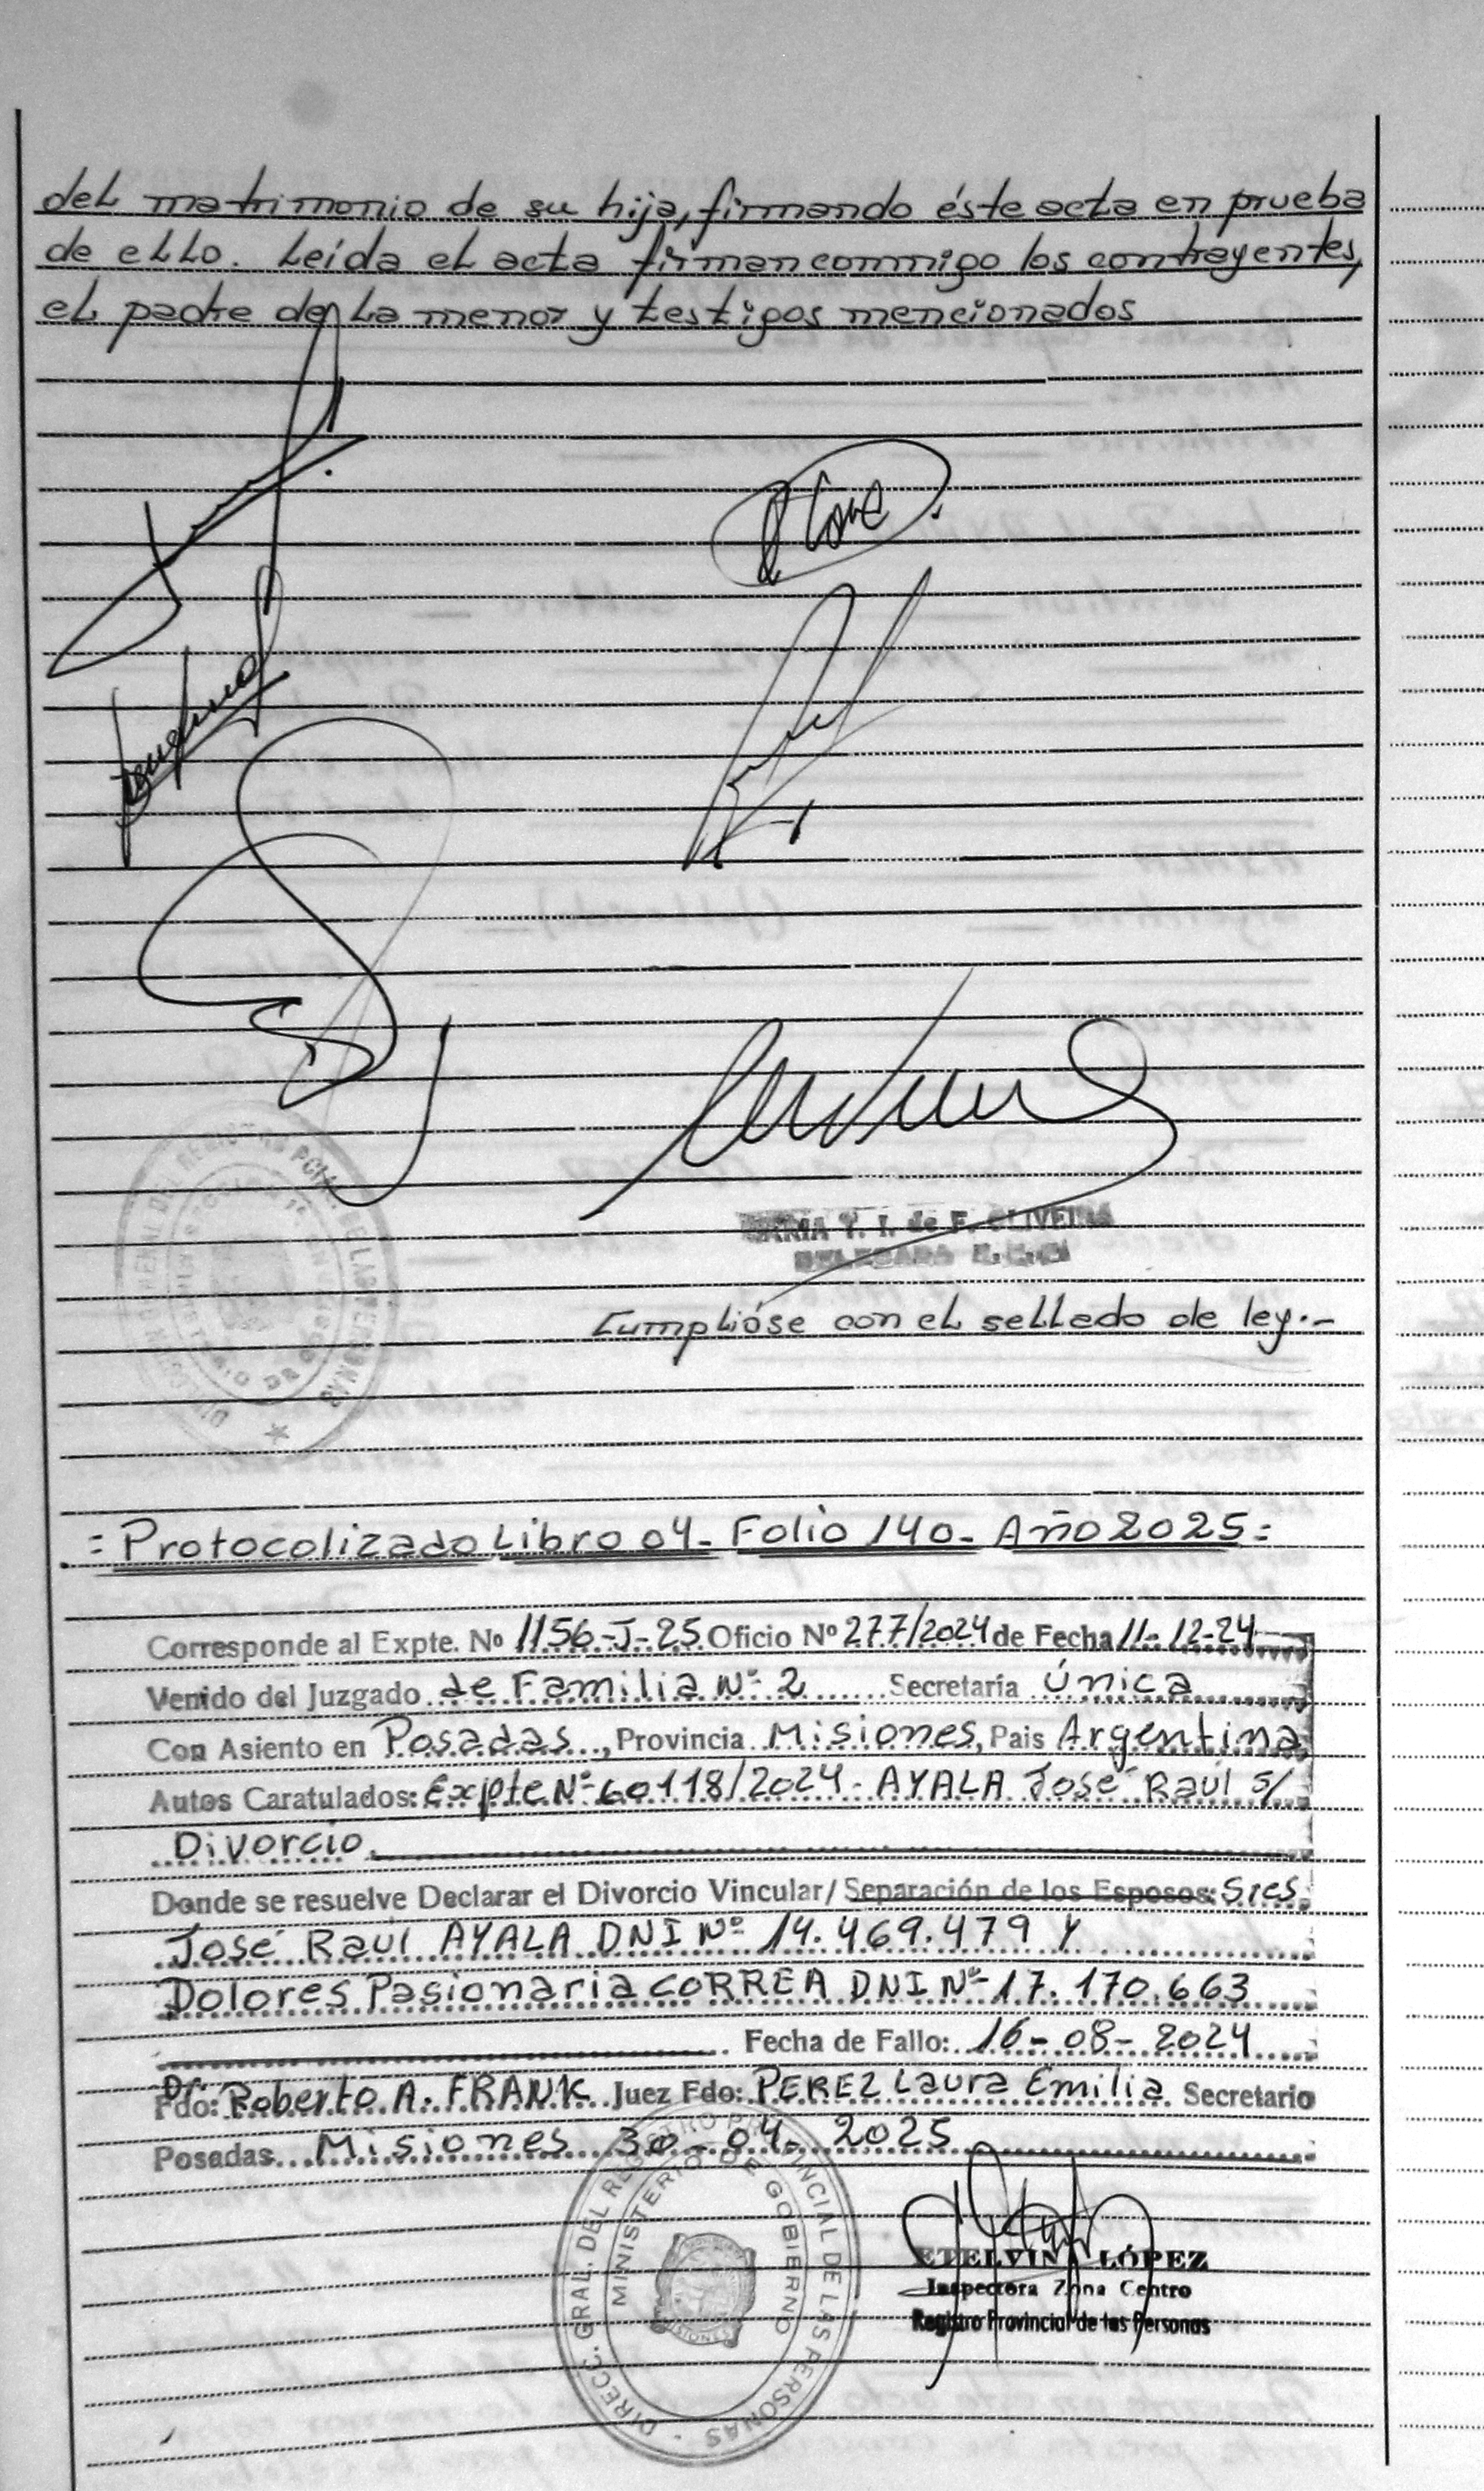 del matrimonio de su hija, firmando éste acta en prueba
de ello. Leída el acta firman conmigo los contrayentes,
el padre de la menor y testigos mencionados
MARIA T. I. de F. OLIVEIRA
DELEGADA
Cumplióse con el sellado de ley.-
= Protocolizado Libro 04- Folio 140- Año 2025=
Corresponde al Expte. Nº 1156-J-25 Oficio Nº 277/2024 de Fecha 11-12-24
Venido del Juzgado de Familia Nº 2 Secretaría Única
Con Asiento en Posadas, Provincia Misiones, Pais Argentina
Autos Caratulados: Expte Nº 60118/2024- AYALA José Raúl s/
Divorcio.
Donde se resuelve Declarar el Divorcio Vincular/ Separación de los Esposos: Sres.
José Raúl AYALA DNI Nº 14.469.479 Y
Dolores Pasionaria CORREA DNI Nº 17.170.663
Fecha de Fallo: 16-08-2024
Fdo: Dr. Roberto A. FRANK Juez Fdo: PEREZ Laura Emilia Secretario
Posadas Misiones 30-04-2025
DIRECC. GRAL. DEL REGISTRO PROVINCIAL DE LAS PERSONAS
MINISTERIO DE GOBIERNO
MISIONES
ETELVINA LÓPEZ
Inspectora Zona Centro
Registro Provincial de las Personas